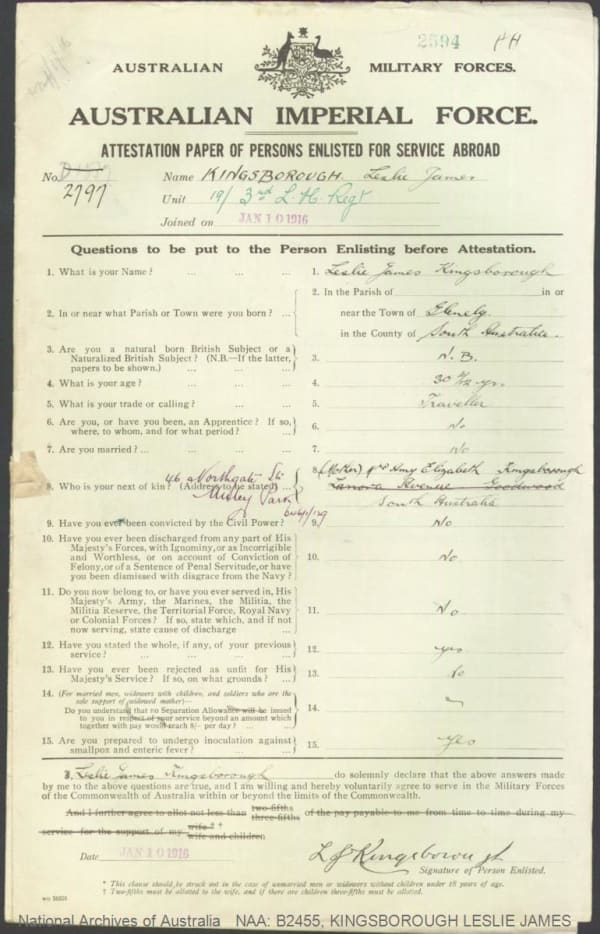 2594
AUSTRALIAN MILITARY FORCES.
AUSTRALIAN IMPERIAL FORCE.
ATTESTATION PAPER OF PERSONS ENLISTED FOR SERVICE ABROAD
No. 2797 Name KINGSBOROUGH Leslie James
Unit 19/ 3rd L. H. Regt
Joined on JAN 10 1916
Questions to be put to the Person Enlisting before Attestation.
1. What is your Name? ... ... ... 1. Leslie James Kingsborough
2. In or near what Parish or Town were you born? ... 2. In the Parish of in or
near the Town of Glenelg.
in the County of South Australia.
3. Are you a natural born British Subject or a
Naturalized British Subject? (N.B.—If the latter,
papers to be shown.) ... ... 3. N. B.
4. What is your age? ... ... ... 4. 30 yrs.
5. What is your trade or calling? ... ... 5. Traveller
6. Are you, or have you been, an Apprentice? If so,
where, to whom, and for what period? ... 6. No
7. Are you married? ... ... ... 7. No
8. Who is your next of kin? (Address to be stated) ... 8. (Mother) Mrs Amy Elizabeth Kingsborough
46 Northgate St.
Unley Park
Avenue Goodwood
South Australia
9. Have you ever been convicted by the Civil Power? 9. No
10. Have you ever been discharged from any part of His
Majesty's Forces, with Ignominy, or as Incorrigible
and Worthless, or on account of Conviction of
Felony, or of a Sentence of Penal Servitude, or have
you been dismissed with disgrace from the Navy? 10. No
11. Do you now belong to, or have you ever served in, His
Majesty's Army, the Marines, the Militia, the
Militia Reserve, the Territorial Force, Royal Navy
or Colonial Forces? If so, state which, and if not
now serving, state cause of discharge ... 11. No
12. Have you stated the whole, if any, of your previous
service? ... ... ... ... 12. yes
13. Have you ever been rejected as unfit for His
Majesty's Service? If so, on what grounds? ... 13. No
14. (For married men, widowers with children, and soldiers who are the
sole support of widowed mother)—
Do you understand that no Separation Allowance will be issued
to you in respect of your service beyond an amount which
together with pay would reach 8/- per day? ... ... 14.
15. Are you prepared to undergo inoculation against
smallpox and enteric fever? ... ... 15. yes
I, Leslie James Kingsborough do solemnly declare that the above answers made
by me to the above questions are true, and I am willing and hereby voluntarily agree to serve in the Military Forces
of the Commonwealth of Australia within or beyond the limits of the Commonwealth.
And I further agree to allot not less than two-fifths three-fifths of the pay payable to me from time to time during my
service for the support of my wife * † wife and children
Date JAN 10 1916 L J Kingsborough
Signature of Person Enlisted.
* This clause should be struck out in the case of unmarried men or widowers without children under 18 years of age.
† Two-fifths must be allotted to the wife, and if there are children three-fifths must be allotted.
National Archives of Australia NAA: B2455, KINGSBOROUGH LESLIE JAMES